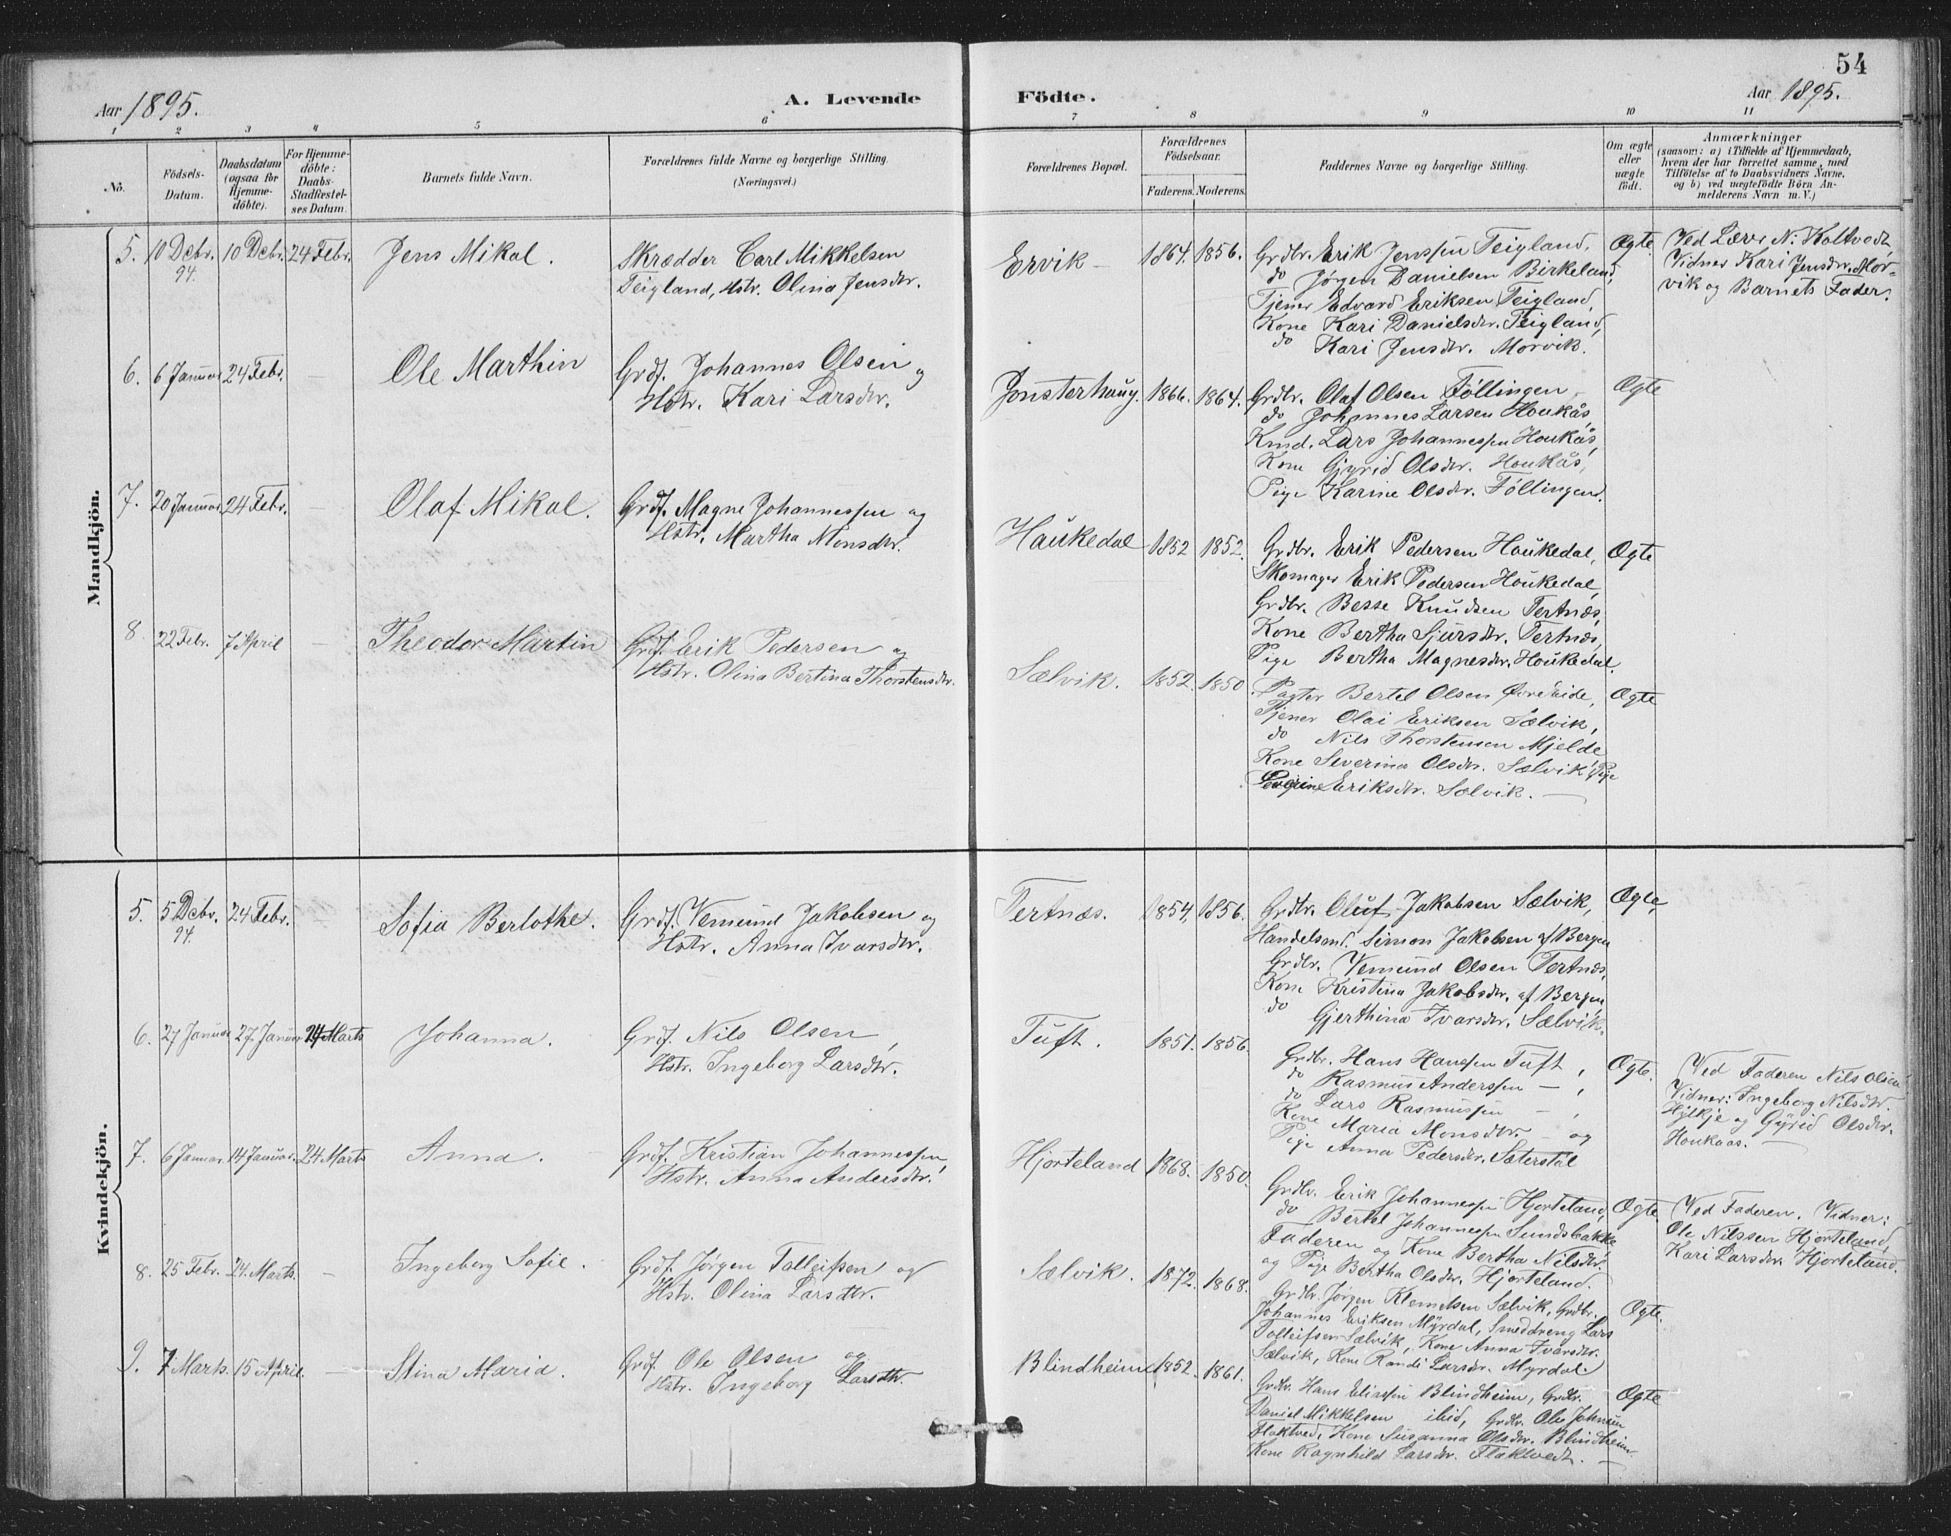 54
Aar 1895.
A. Levende Födte.
Aar 1895.
1 2 3 4 5 6 7 8 9 10 11
No.
Födsels-
Datum.
Daabsdatum
(ogsaa for
Hjemme-
döbte).
For Hjemme-
döbte:
Daabs-
Stadfæstel-
ses Datum.
Barnets fulde Navn.
Forældrenes fulde Navne og borgerlige Stilling.
(Næringsvei.)
Forældrenes Bopæl.
Forældrenes
Födselsaar.
Faderens. Moderens.
Faddernes Navne og borgerlige Stilling.
Om ægte
eller
uægte
født.
Anmærkninger
(saasom: a) i Tilfælde af Hjemmedaab,
hvem der har forrettet samme, med
Tilföielse af to Daabsvidners Navne,
og b) ved uægtefödte Börn An-
melderens Navn m.V.)
Mandkjön.
5. 10 Decbr. 94. 10 Decbr. 24 Febr. Jens Mikal.
Skrædder Carl Mikkelsen
Teigland, Hstr. Olina Jensdtr.
Ervik 1864. 1856.
Grdbr. Erik Jenssen Teigland,
do Jørgen Danielsen Birkeland,
Tjener Edvard Eriksen Teigland
Kone Kari Danielsdtr. Teigland,
do Kari Jensdtr. Morvik.
Ægte
Ved Lærer N. Koltvedt,
Vidner Kari Jensdtr. Mor-
vik og Barnets Fader.
6. 6 Januar 24 Febr. — Ole Marthin
Grdf. Johannes Olsen og
Hstr. Kari Larsdtr.
Jonsterhaug. 1866. 1864.
Grdbr. Olaf Olsen Föllingen
do Johannes Larsen Houkås,
Kmd. Lars Johannessen Houkås,
Kone Gjyrid Olsdtr. Houkås,
Pige Karine Olsdtr. Föllingen.
Ægte
7. 20 Januar 24 Febr. — Olaf Mikal.
Grdf. Magne Johannessen og
Hstr. Martha Monsdtr.
Haukedal 1852 1852.
Grdbr. Erik Pedersen Houkedal,
Skomager Erik Pedersen Houkedal
Grdbr. Besse Knudsen Tertnæs,
Kone Bertha Sjursdtr. Tertnæs,
Pige Bertha Magnesdtr. Houkedal.
Ægte
8. 22 Febr. 7 April — Theodor Martin
Grdf. Erik Pedersen og
Hstr. Olina Bertina Thorstensdtr.
Sælvik. 1852. 1850.
Pagter Bertel Olsen Øvreeide,
Tjener Olai Eriksen Sælvik,
do Nils Thorstensen Mjelde
Kone Severina Olsdtr. Sælvik, Pige
Eriksdtr. Sælvik. —
Ægte
Kvindekjön.
5. 5 Decbr. 94. 24 Febr. Sofia Berlothe.
Grdf. Vemund Jakobsen og
Hstr. Anna Ivarsdtr.
Tertnæs. 1854. 1856.
Grdbr. Oluf Jakobsen Sælvik,
Handelsmd. Simon Jakobsen af Bergen
Grdbr. Vemund Olsen Tertnæs,
Kone Kristina Jakobsdtr. af Bergen
do Gjerthina Ivarsdtr. Sælvik.
Ægte,
6. 27 Januar 27 Januar 24 Marts Johanna.
Grdf. Nils Olsen,
Hstr. Ingeborg Larsdtr.
Tuft. 1851. 1856.
Grdbr. Hans Hanssen Tuft,
do Rasmus Anderssen — ,
do Lars Rasmussen — ,
Kone Maria Monsdtr. — og
Pige Anna Pedersdtr. Sæterstøl
Ægte.
Ved Faderen Nils Olsen
Vidner: Ingeborg Nilsdtr.
Hylkje og Gyrid Olsdtr.
Houkaas. —
7. 6 Januar 14 Januar. 24. Marts Anna.
Grdf. Kristian Johannessen,
Hstr. Anna Andersdtr.
Hjorteland 1868. 1850.
Grdbr. Erik Johannessen Hjorteland,
do Bertel Johannessen Sundsbakke
Faderen og Kone Bertha Nilsdtr.
og Pige Bertha Olsdtr. Hjorteland.
Ægte.
Ved Faderen. Vidner:
Ole Nilssen Hjorteland,
Kari Larsdtr. Hjorteland.
8. 25 Febr. 24. Marts. — Ingeborg Sofie.
Grdf. Jørgen Tolleifsen og
Hstr. Olina Larsdtr.
Sælvik. 1872. 1868.
Grdbr. Jørgen Klemetsen Sælvik, Grdbr.
Johannes Eriksen Myrdal, Smeddreng Lars
Tolleifsen Sælvik, Kone Anna Ivarsdtr.
Sælvik, Kone Randi Larsdtr. Myrdal.
Ægte.
9. 7 Marts. 15 April. — Stina Maria.
Grdf. Ole Olsen og
Hstr. Ingeborg Larsdtr.
Blindheim 1852. 1861.
Grdbr. Hans Elissen Blindheim, Grdbr.
Daniel Mikkelsen ibid, Grdbr. Ole Johnsen
Flaktved, Kone Susanna Olsdtr. Blindheim
Kone Ragnhild Larsdtr. Flaktvedt. —
Ægte